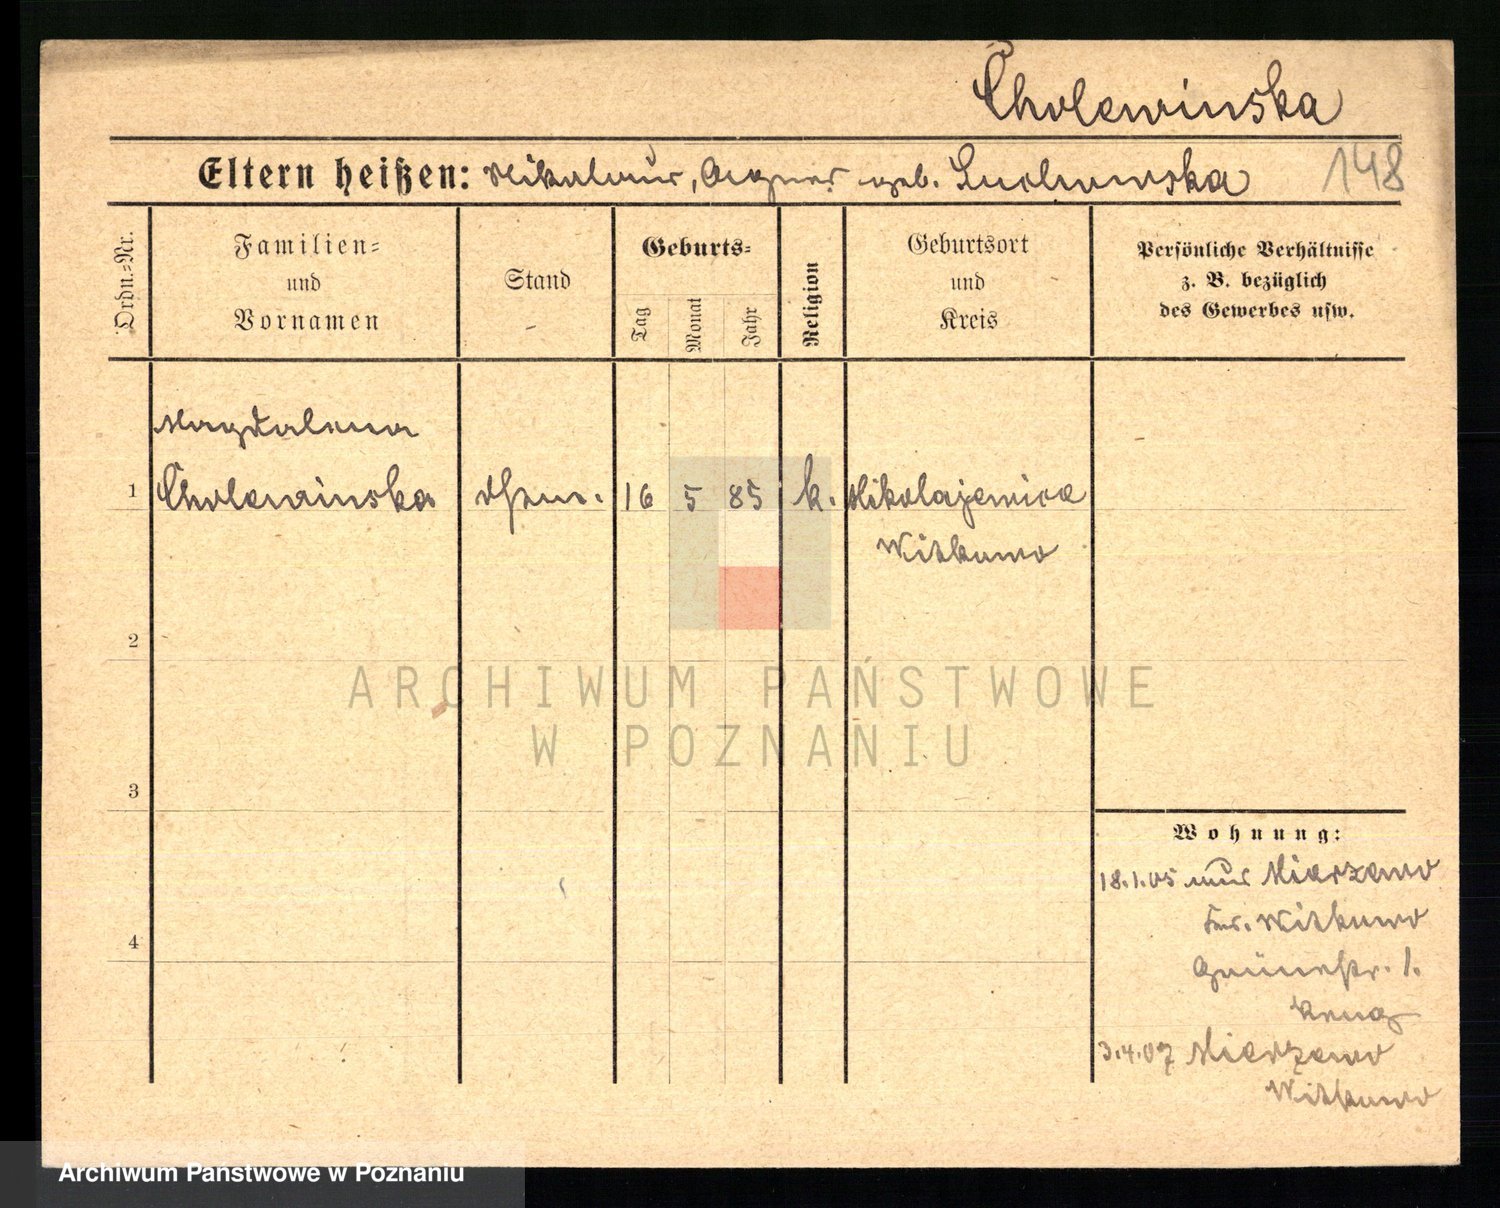 Cholewinska
Eltern heißen: Nikolaus, Agnes geb. Suchowska 148
Ordn.=Nr.
Familien=
und
Vornamen
Stand
Geburts=
Tag
Monat
Jahr
Religion
Geburtsort
und
Kreis
Persönliche Verhältnisse
z. B. bezüglich
des Gewerbes usw.
Magdalena
1 Cholewinska 16 5 85 k. Mikolajewice
Witkowo
2
ARCHIWUM PAŃSTWOWE
W POZNANIU
3
Wohnung:
18.1.05 aus Mierzewo
Krs. Witkowo
4
Grünestr. 1.
3.4.07 Mierzewo
Witkowo
Archiwum Państwowe w Poznaniu